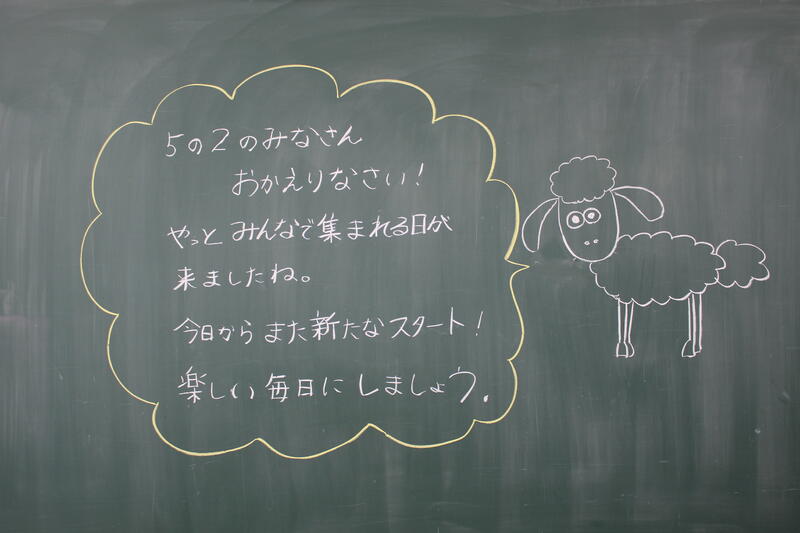 5の2のみなさん
おかえりなさい!
やっと みんなで集まれる日が
来ましたね。
今日から また 新たな スタート!
楽しい 毎日に しましょう.